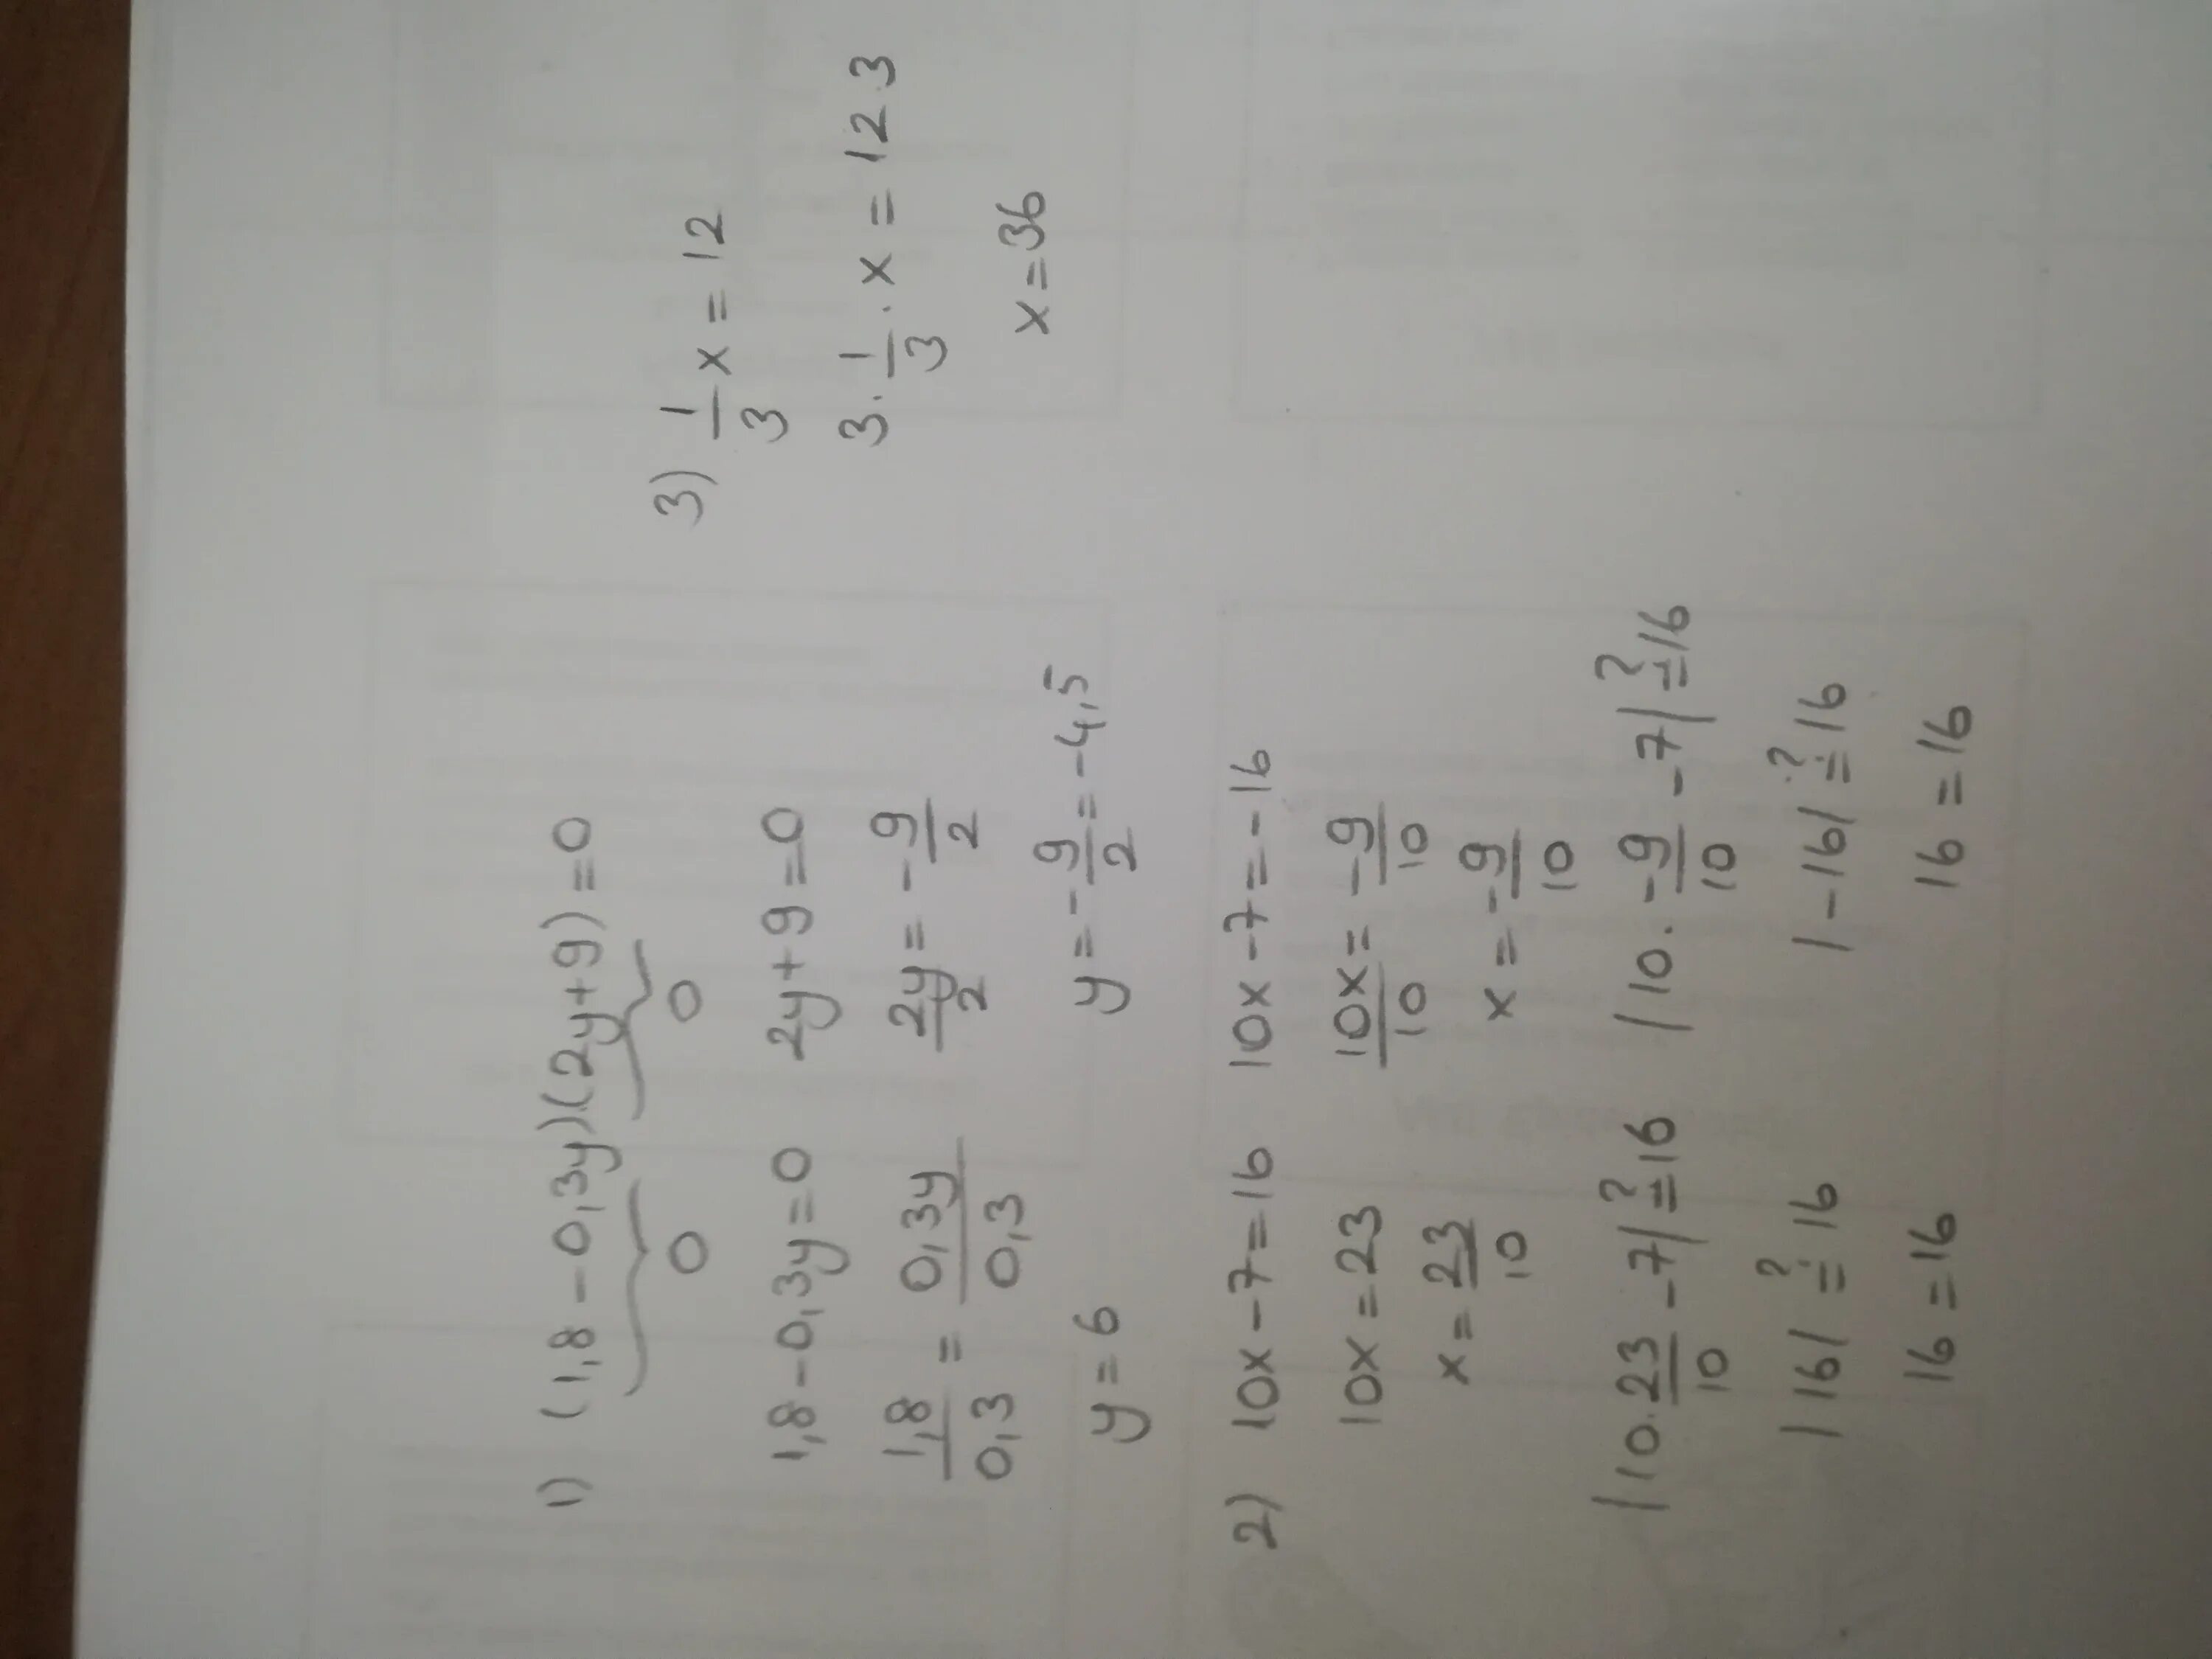 1) (1,8 - 0,3y)(2y+9) = 0
0 0
1,8 - 0,3y = 0 2y + 9 = 0
1,8/0,3 = 0,3y/0,3 2y/2 = -9/2
y = 6 y = -9/2 = -4,5
2) 10x - 7 = 16 10x - 7 = -16
10x = 23 10x/10 = -9/10
x = 23/10 x = -9/10
|10·23/10 - 7| ≟ 16 |10·-9/10 - 7| ≟ 16
|16| ≟ 16 |-16| ≟ 16
16 = 16 16 = 16
3) 1/3 x = 12
3·1/3·x = 12·3
x = 36